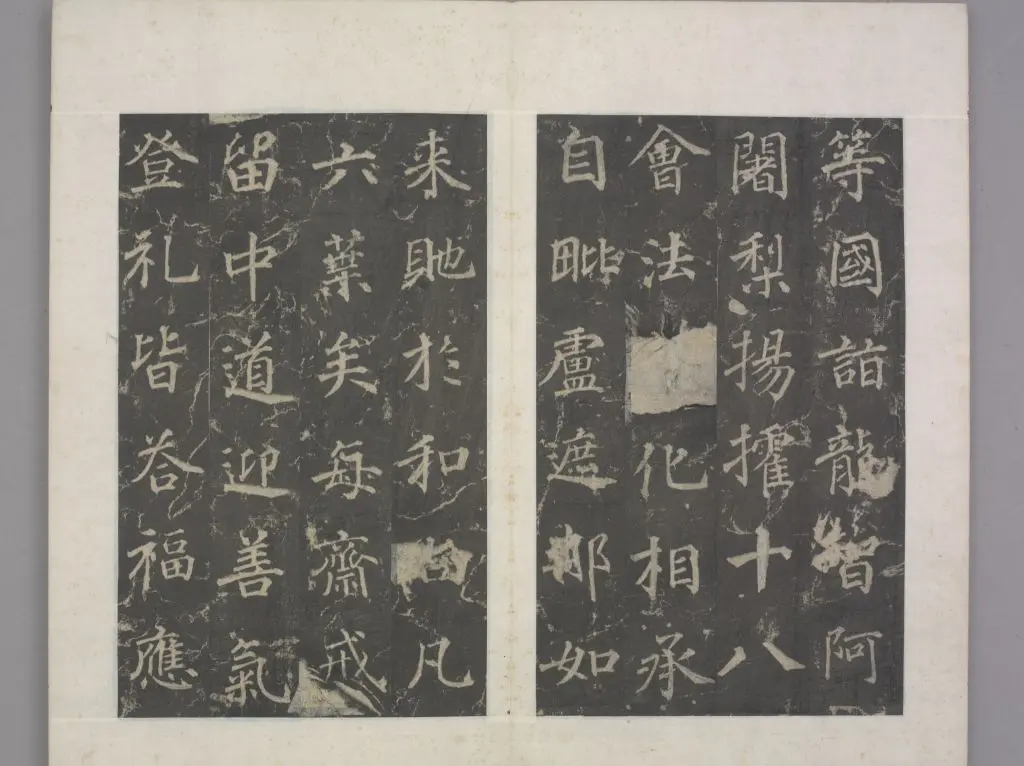 等國詣龍智阿
闍梨揚攉十八
會法化相承
自毗盧遮那如
来貤於和凡
六葉矣每齋戒
留中道迎善氣
登礼皆荅福應